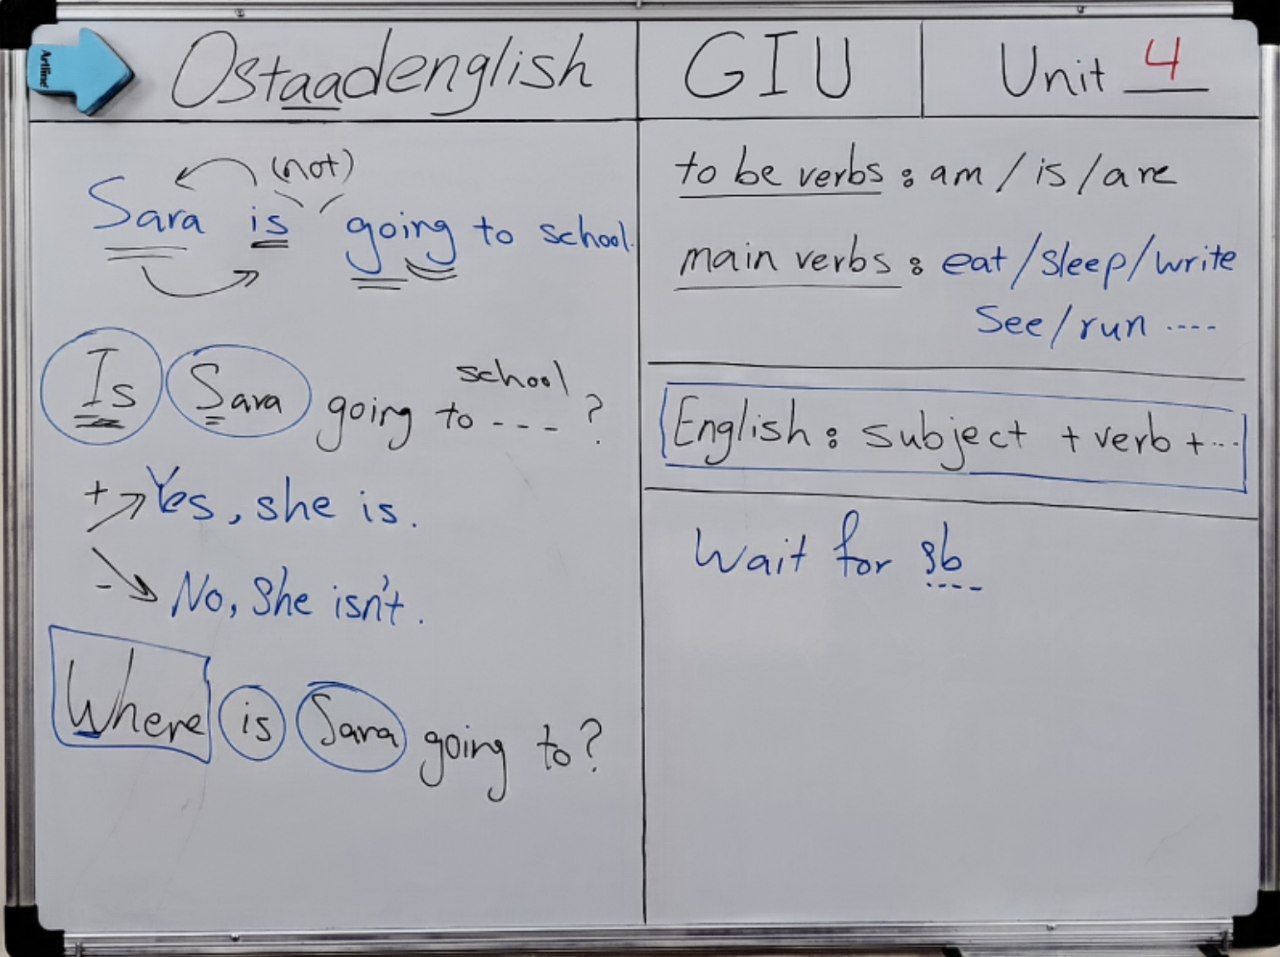 Artline
Ostaadenglish
GIU
Unit 4
(not)
Sara is going to school.
Is Sara going to - - - ?
school
+ Yes, she is.
- No, She isn't.
Where is Sara going to?
to be verbs : am / is / are
main verbs : eat / sleep / write
See / run ....
English : subject + verb + ...
Wait for sb